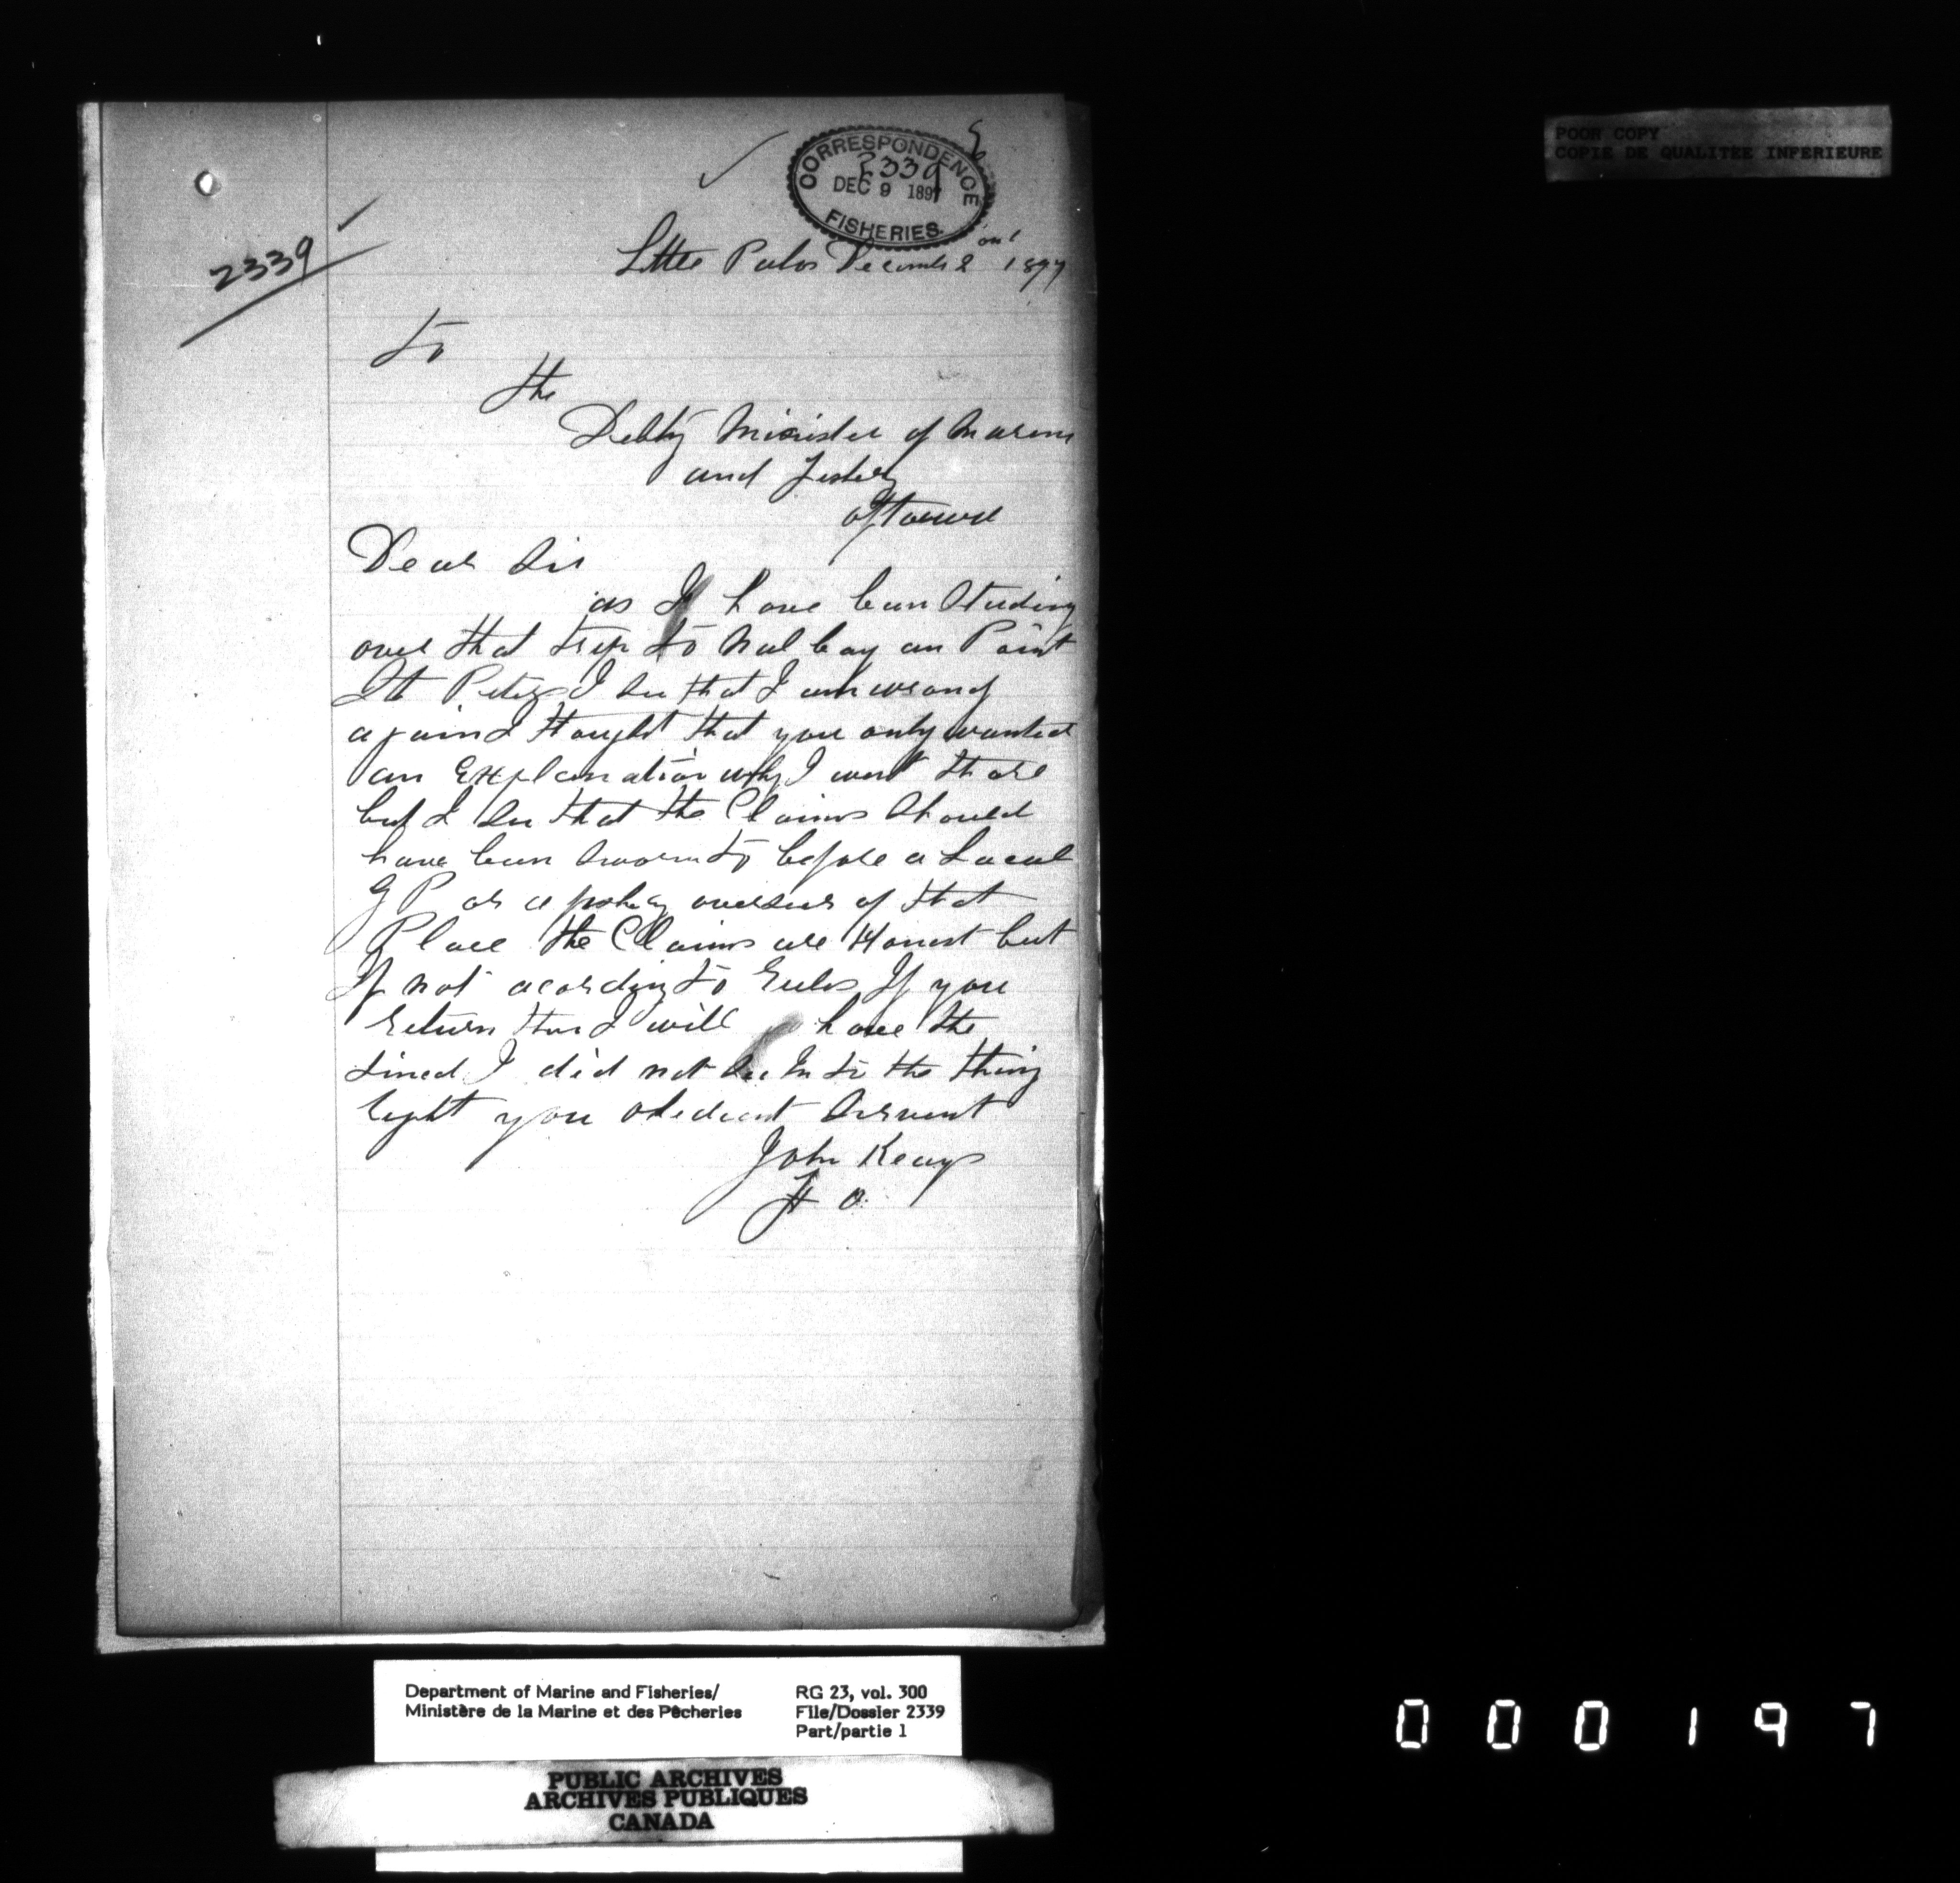 POOR COPY
COPIE DE QUALITEE INFERIEURE
CORRESPONDENCE
2339
DEC 9 1897
FISHERIES.
2339
Little Pabos Decembe 2 ond 1897
To
the
Debty Minister of Marine
and Fishery
ottawa
Dear Sir
as I have been Studing
over that trip to Mal bay an Point
St Peter I See that I am wrong
again I thought that you only wanted
an Explanation why I went thare
but I See that the Claims Should
have been Sworn to before a Local
J P or a fishery overseer of that
Place the Claims are Honest but
If not acording to Rules If you
return them I will have the
Sined I did not See In to the thing
right you obedient Servent
John Keays
F O
Department of Marine and Fisheries/
Ministère de la Marine et des Pêcheries
RG 23, vol. 300
File/Dossier 2339
Part/partie 1
PUBLIC ARCHIVES
ARCHIVES PUBLIQUES
CANADA
000197